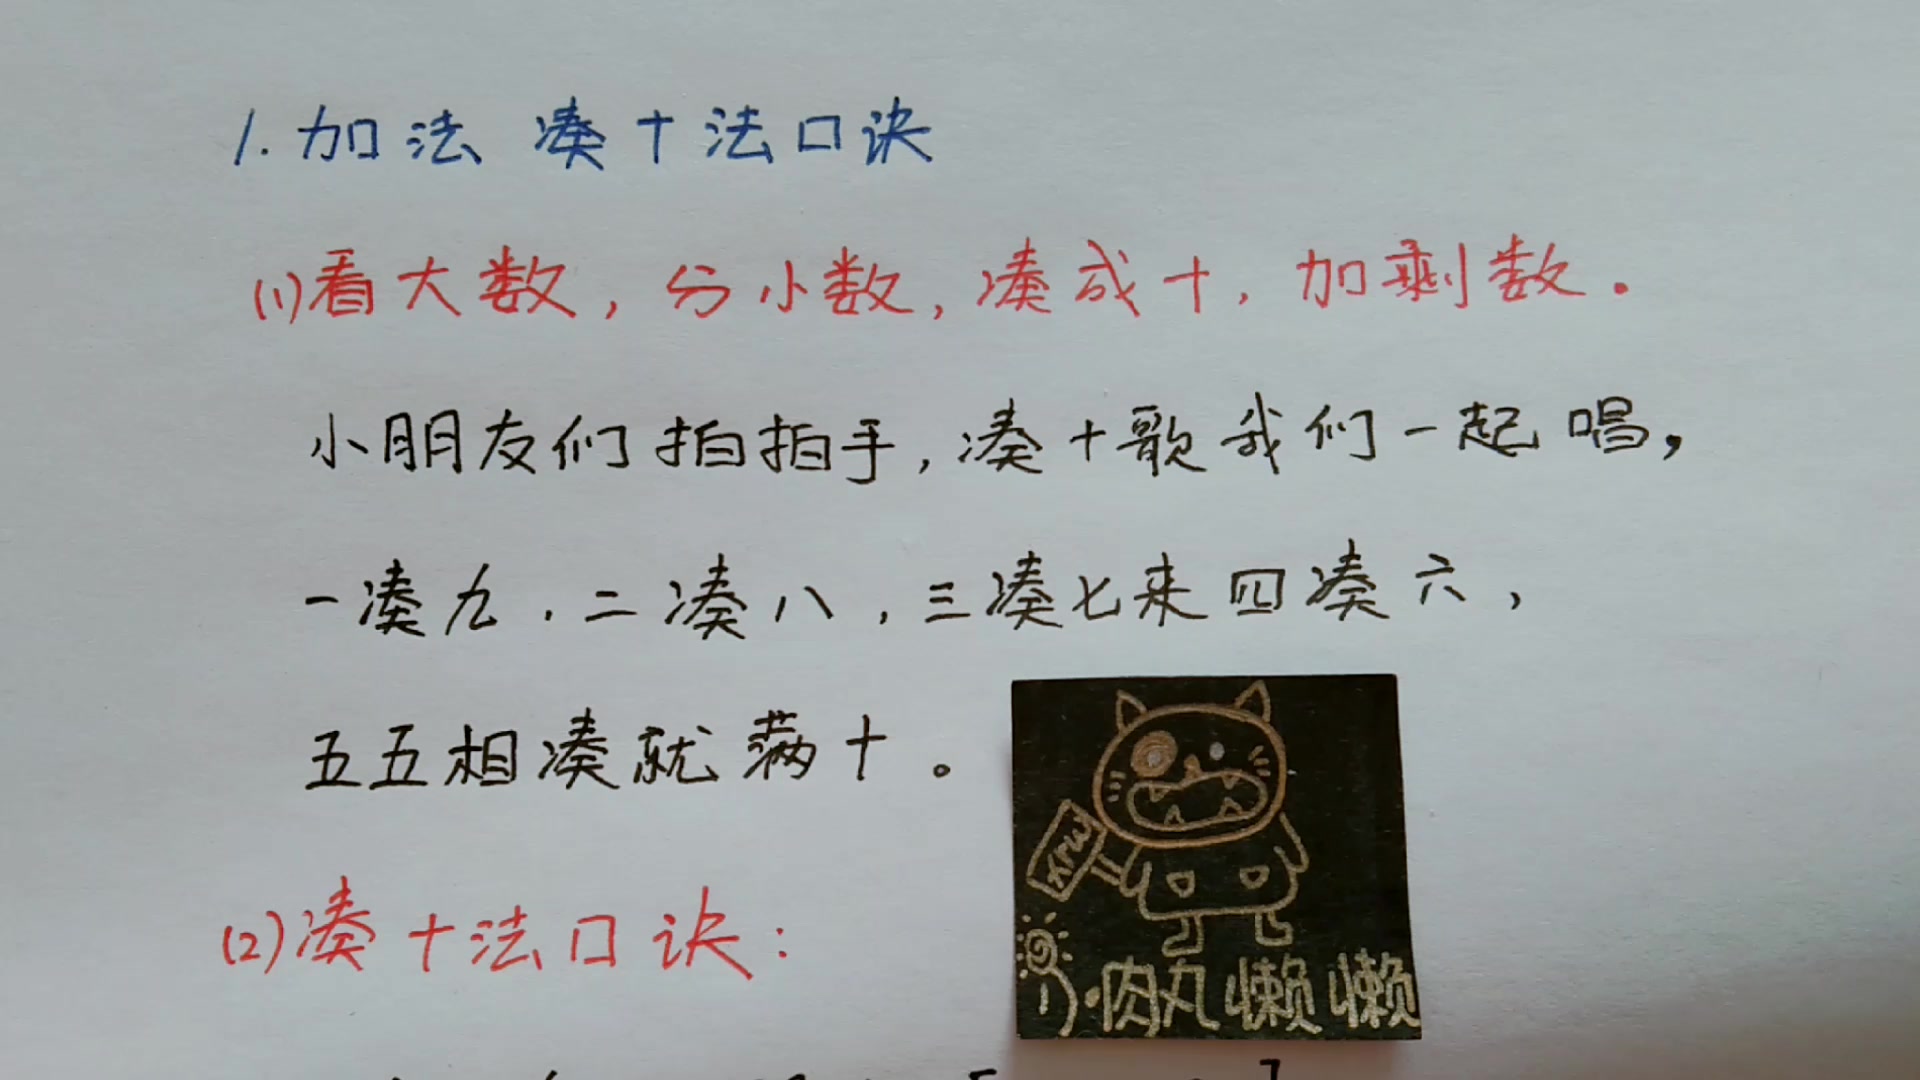 1.加法 凑十法口诀
(1)看大数,分小数,凑成十,加剩数.
小朋友们拍拍手,凑十歌我们一起唱,
一凑九,二凑八,三凑七来四凑六,
五五相凑就满十。
XRW
肉丸懒懒
(2)凑十法口诀: